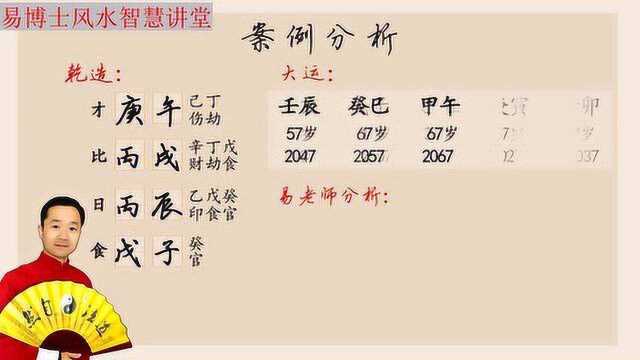 易博士风水智慧讲堂
案例分析
乾造：
才 庚 午 己丁
伤劫
比 丙 戌 辛丁戊
财劫食
日 丙 辰 乙戊癸
印食官
食 戊 子 癸
官
大运：
壬辰 癸巳 甲午 寅 卯
57岁 67岁 67岁
2047 2057 2067 037
易老师分析：
然自法道